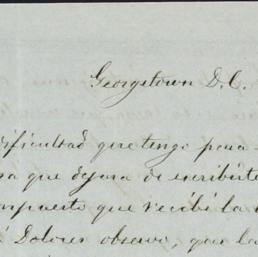 Georgetown D.C.
dificultad que tengo para
que dejara de escribirte
que recibí la
Dolores observo, que la